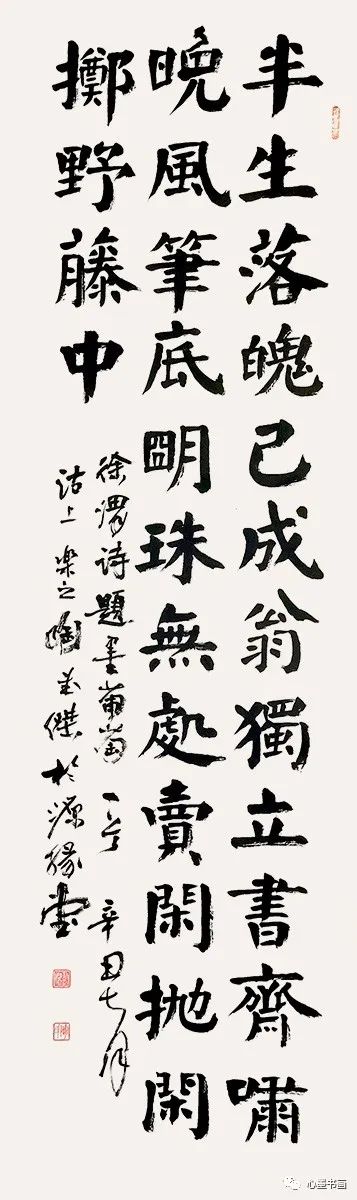 半生落魄已成翁獨立書齋嘯
晚風筆底明珠無處賣閑拋閑
擲野藤中
徐渭诗題墨葡萄一首 辛丑七月
沽上樂之陶孟傑於源緣堂
心墨书画